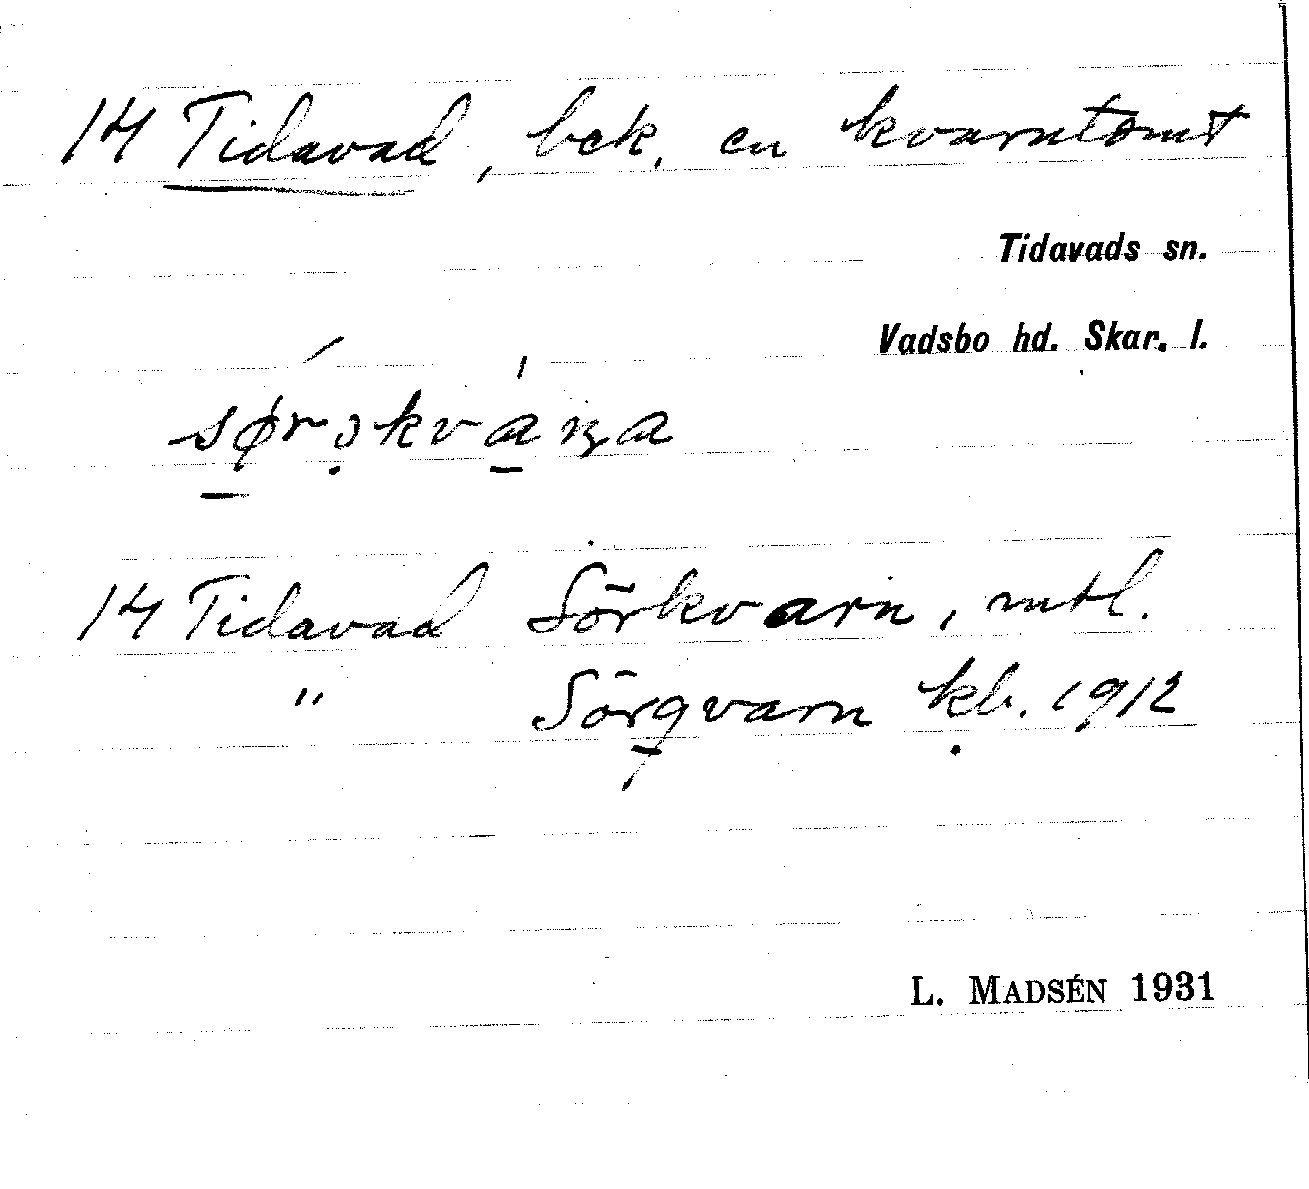 1/4 Tidavad, bek. en kvarntomt
Tidavads sn.
Vadsbo hd. Skar. l.
1/4 Tidavad Sörkvarn, mtl.
" Sörqvarn kb. 1912
L. MADSÉN 1931